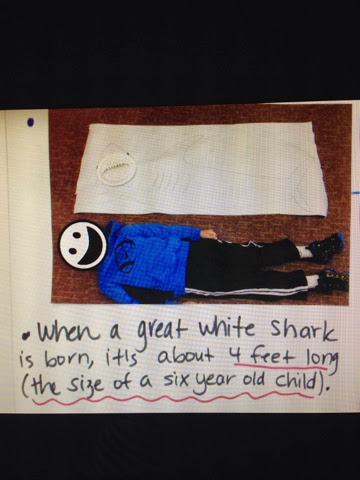 • When a great white shark
is born, it is about 4 feet long
(the size of a six year old child).